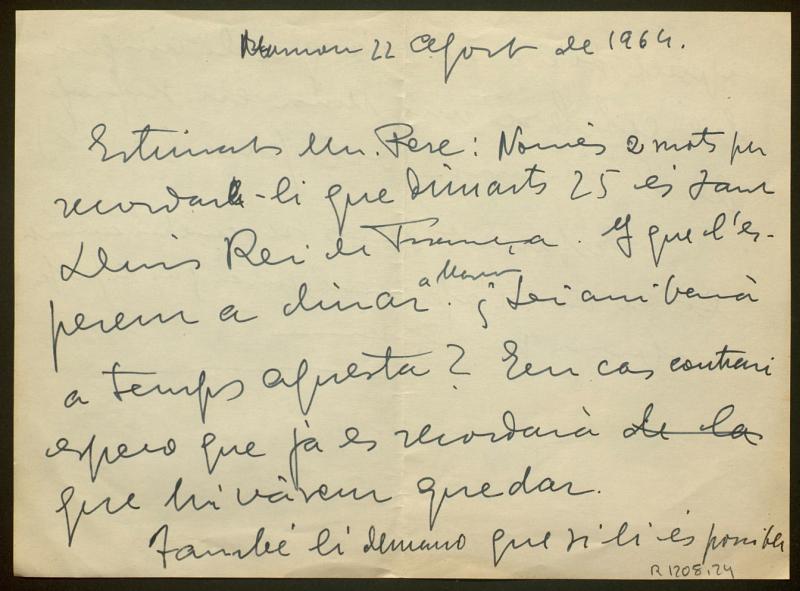 22 Agost de 1964.
Estimats Mn. Pere: Només 2 mots per
recordar-li que Dimarts 25 és Sant
Lluis Rei de França. Y que l'es-
perem a dinar. ¿ Li arribarà
a temps aquesta? En cas contrari
espero que ja es recordarà de la
que hi vàrem quedar.
També li demano que si li és possible
R.1208.124